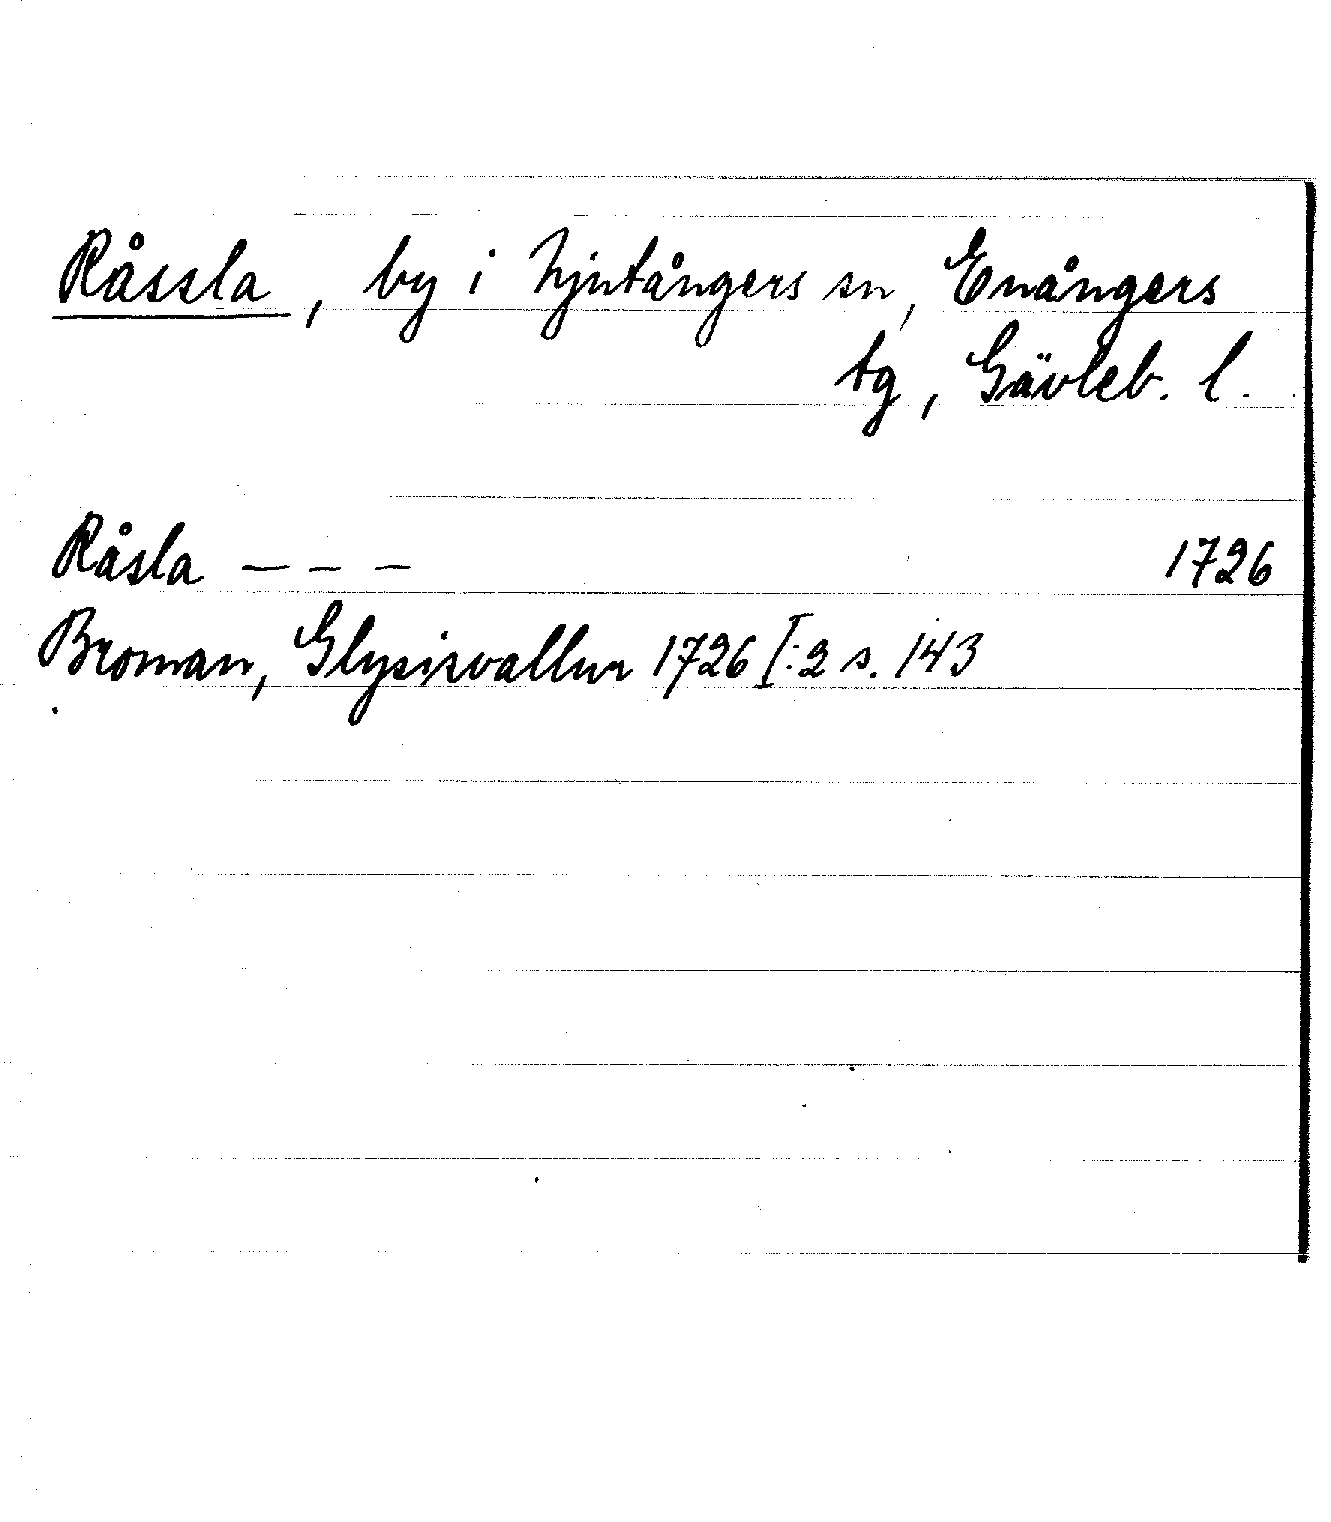 Råssla, by i Njutångers sn, Enångers
tg, Gävleb. l.
Råsla — – – 1726
Broman, Glysisvallur 1726 I:2 s. 143